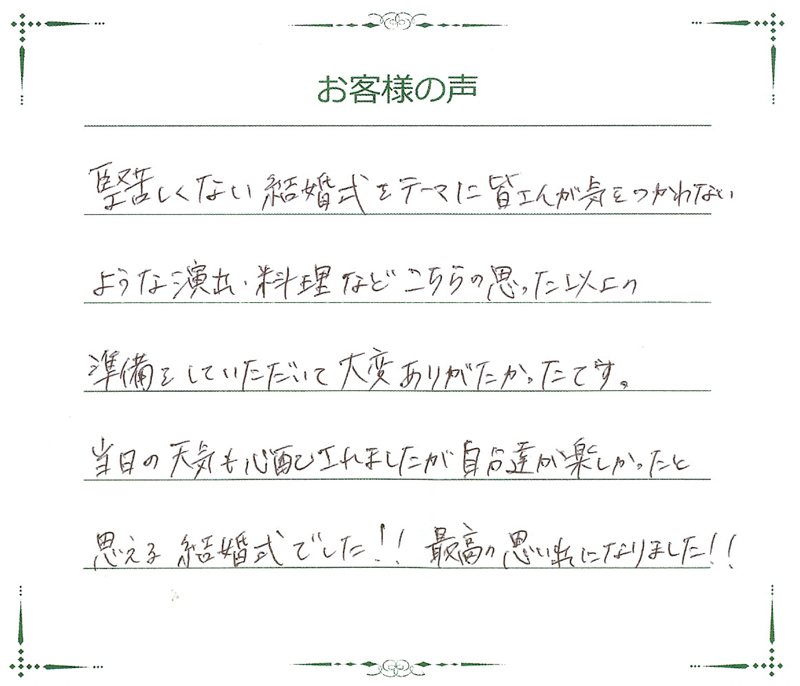 お客様の声
堅苦しくない結婚式をテーマに皆さんが気をつかわない
ような演出・料理などこちらの思った以上の
準備をしていただいて大変ありがたかったです。
当日の天気も心配されましたが自分達が楽しかったと
思える結婚式でした!! 最高の思い出になりました!!